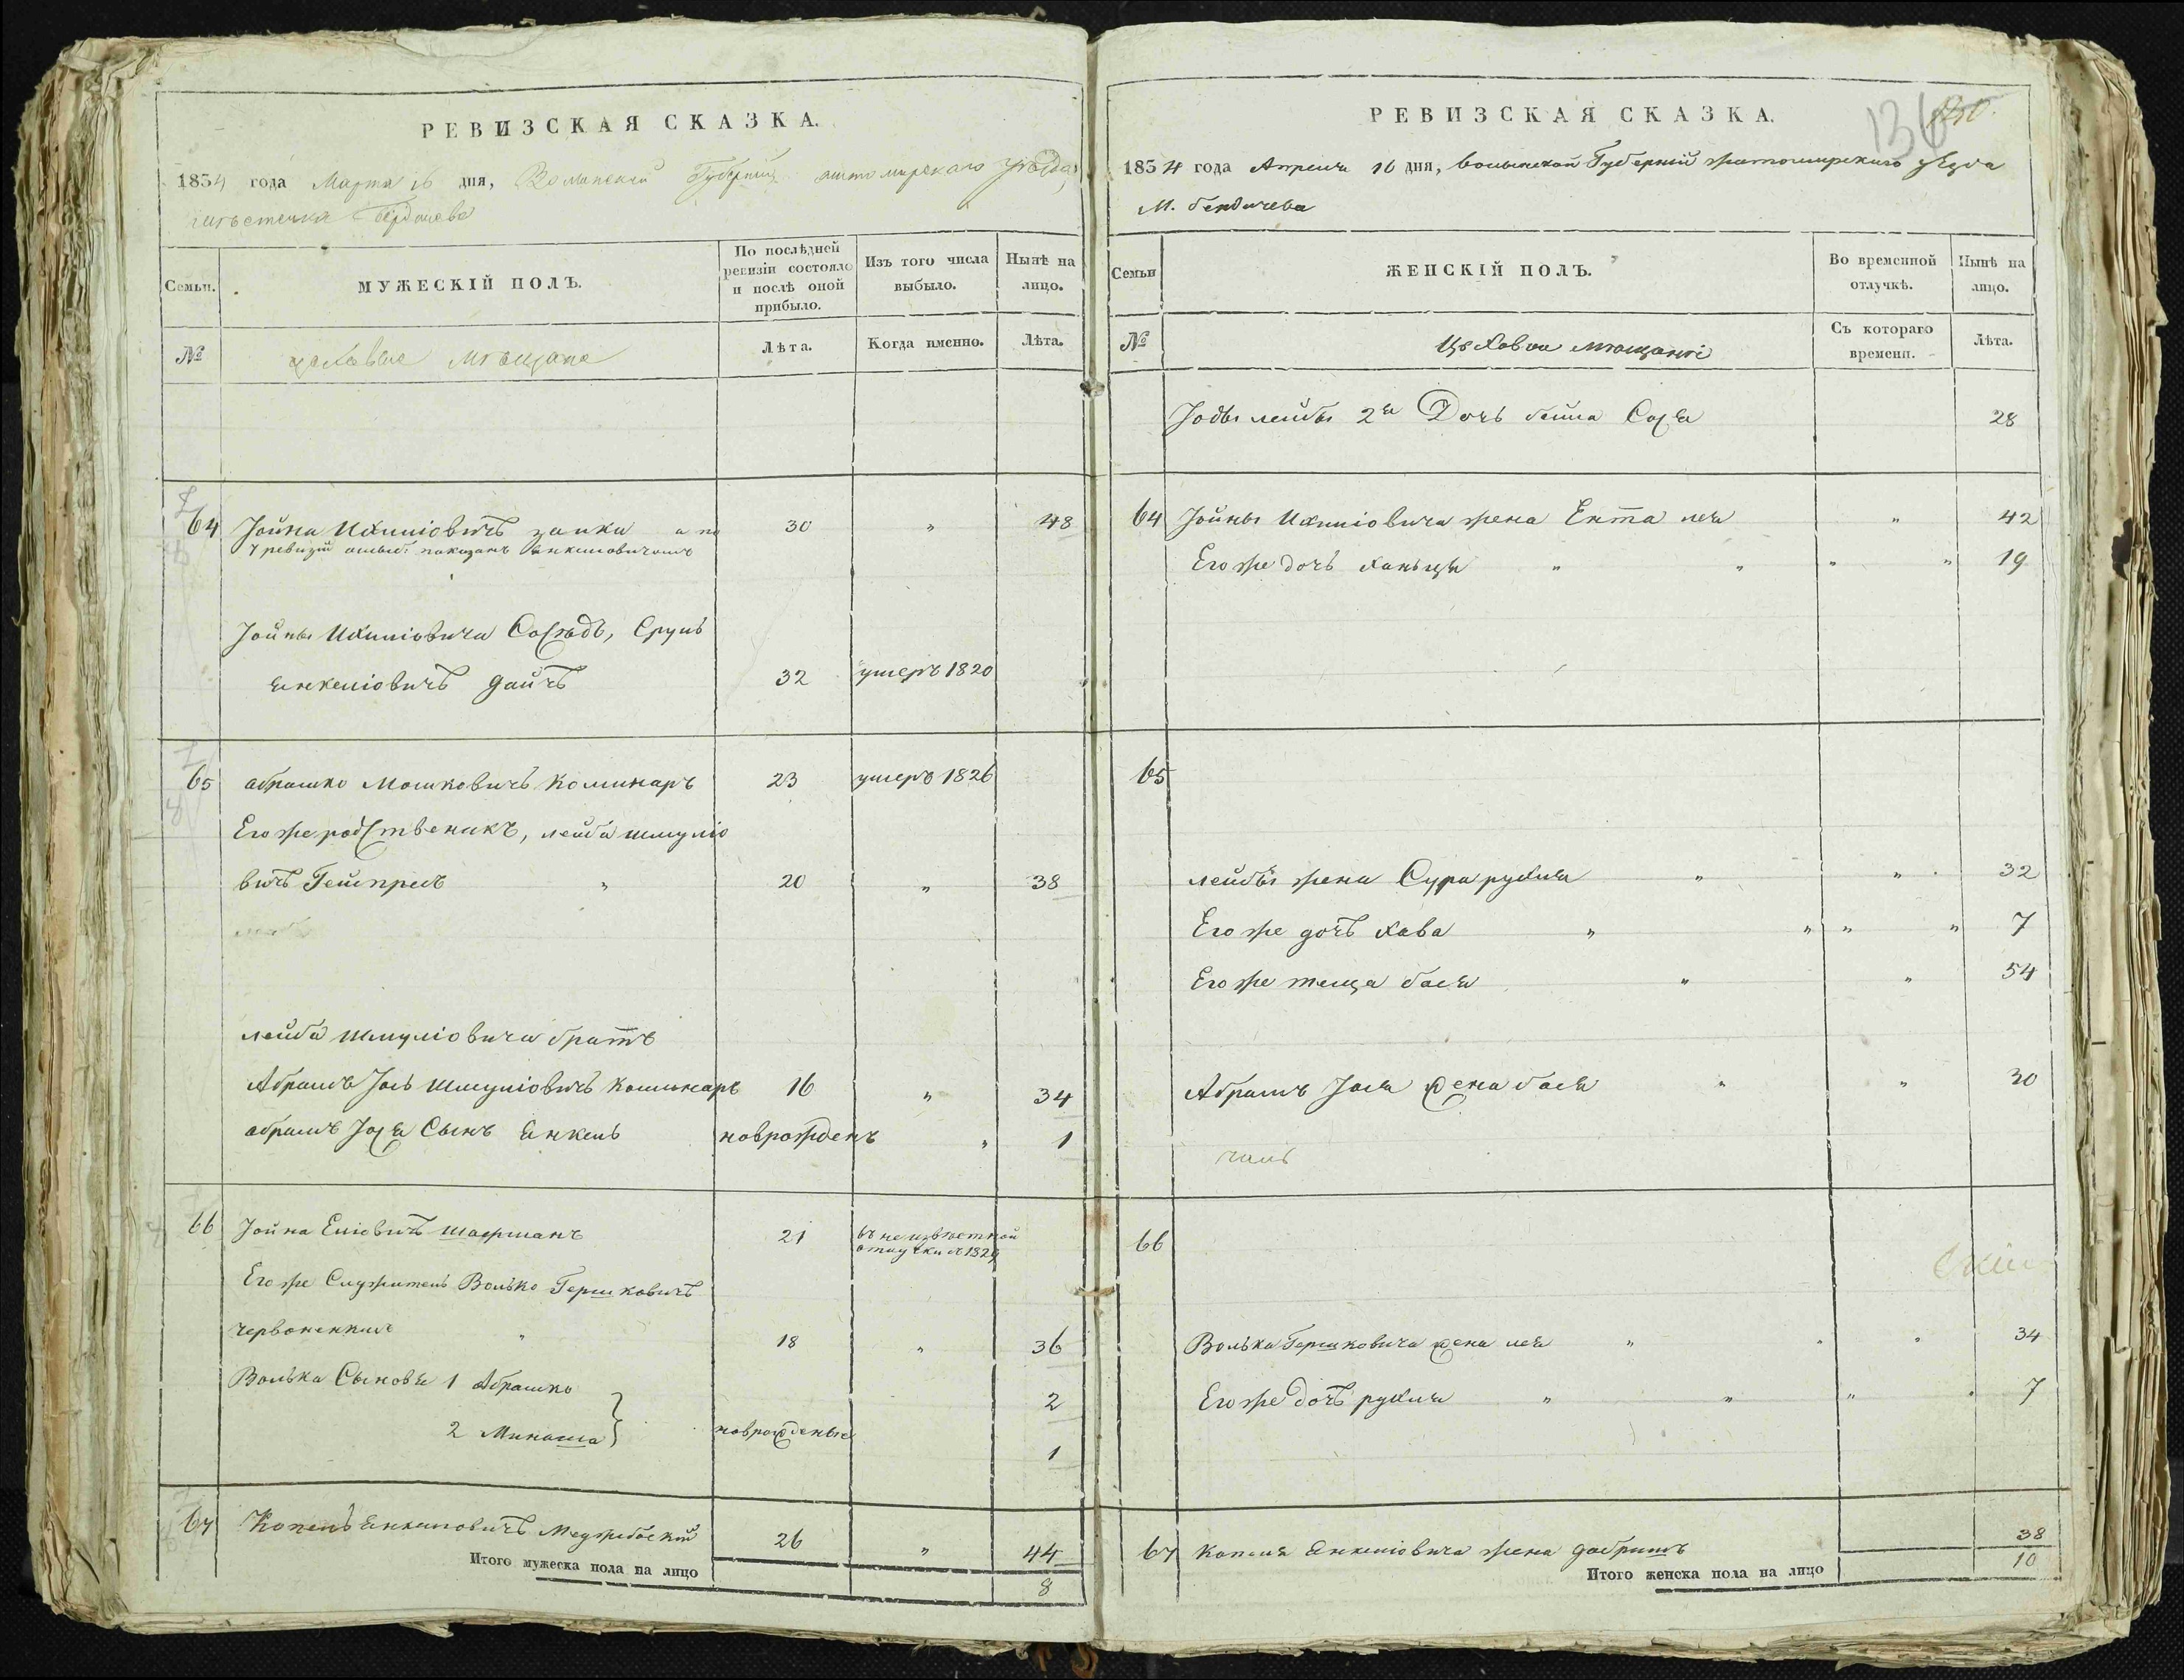 РЕВИЗСКАЯ СКАЗКА.
1834 года Марта 16 дня, Волынской Губерніи житомирскаго уѣзда
мѣстечка Бердичева
Семьи.
МУЖЕСКІЙ ПОЛЪ.
По послѣдней ревизіи состояло и послѣ оной прибыло.
Изъ того числа выбыло.
Нынѣ на лицо.
№
цеховые мѣщане
Лѣта.
Когда именно.
Лѣта.
64 Іойна Ихиліовичъ заика а по 30 " 48
7 ревизіи ошыб: показанъ Янкиловичомъ
Іойны Ихиліовича Сосѣдъ, Сруль
янкеліовичъ дайчъ 32 умеръ 1820
65 абрашко Мошковичъ Коминаръ 23 умеръ 1826
Его же родственикъ, лейба шмуліо
вичъ " 20 " 38
лейба Шмуліовича братъ
Абрамъ Іось Шмуліовичъ Коминаръ 16 " 34
абрамъ Іося Сынъ янкель новрожденъ " 1
66 Іойна Еліовичъ шафманъ 21 въ неизвѣстной
отлучки съ 1829
Его же Служитель Волько Гершковичъ
червоненкисъ " 18 " 36
Волька Сыновя 1 Абрашко 2
2 Минаша новрожденые 1
67 Копель Янкеліовичъ Меджибоскій 26 " 44
Итого мужеска пола на лицо 8
136
РЕВИЗСКАЯ СКАЗКА.
1834 года Апреля 16 дня, волынской Губерніи житомирскаго уѣзда
М. бердичева
Семьи
ЖЕНСКІЙ ПОЛЪ.
Во временной отлучкѣ.
Нынѣ на лицо.
№
Цеховыи мѣщанки
Съ котораго времени.
Лѣта.
лейбы 2я Дочь бейла Сося 28
64 Іойны Ихиліовича жена Ента лея " 42
Его же дочь ханьця " " " " 19
65
лейбы жена Сура рухля " " 32
Его же дочъ хава " " " " 7
Его же теща бася " " 54
Абрамъ Іося жена бася " " 30
66
Волька Гершковича жена лея " " " 34
Его же дочъ рухля " " " " 7
67 Копеля Янкеліовича жена добришъ 38
Итого женска пола на лицо 10